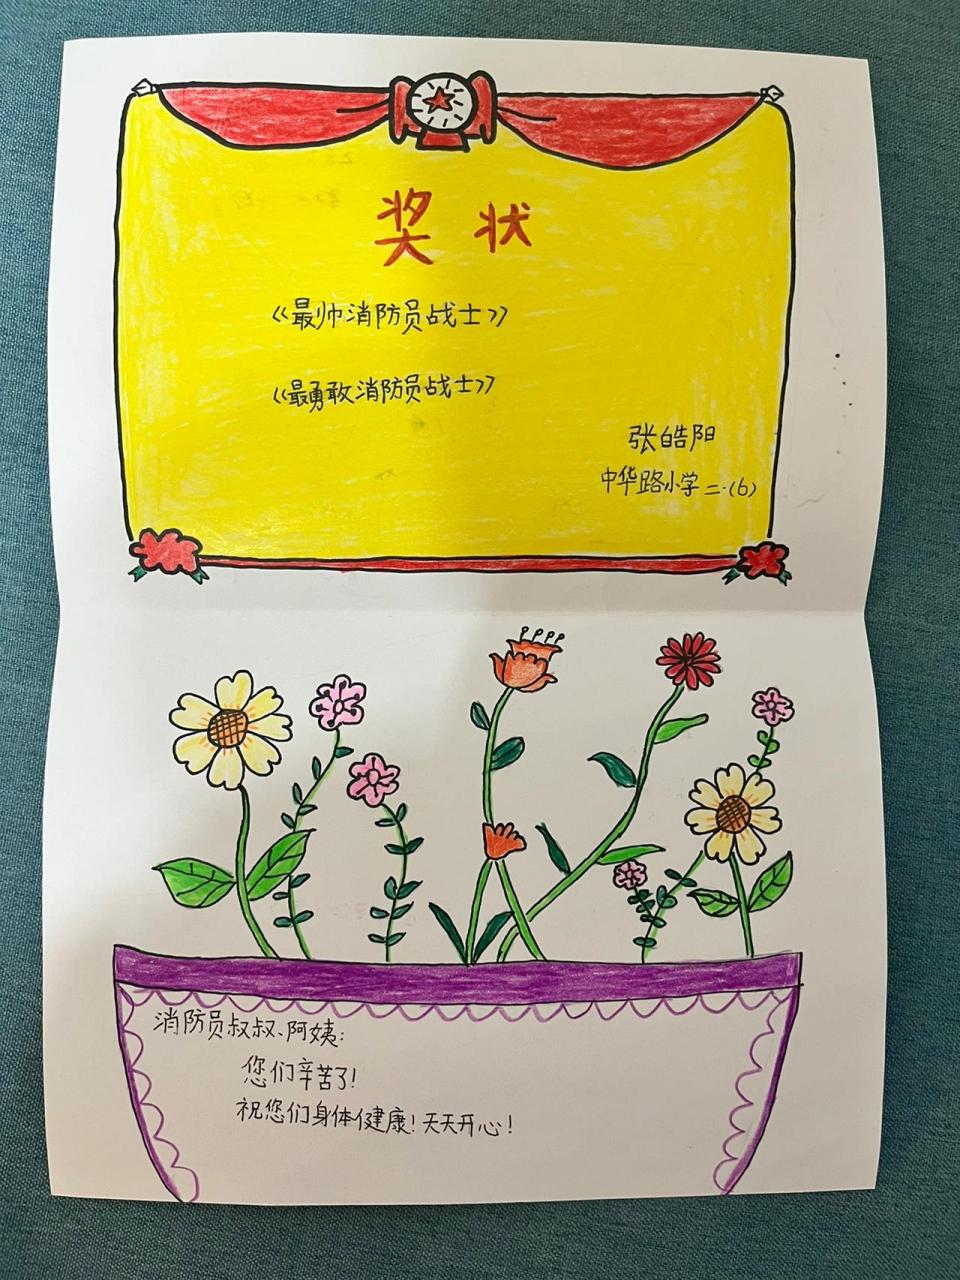 奖状
《最帅消防员战士》
《最勇敢消防员战士》
张皓阳
中华路小学二·(6)
消防员叔叔、阿姨:
您们辛苦了!
祝您们身体健康!天天开心!